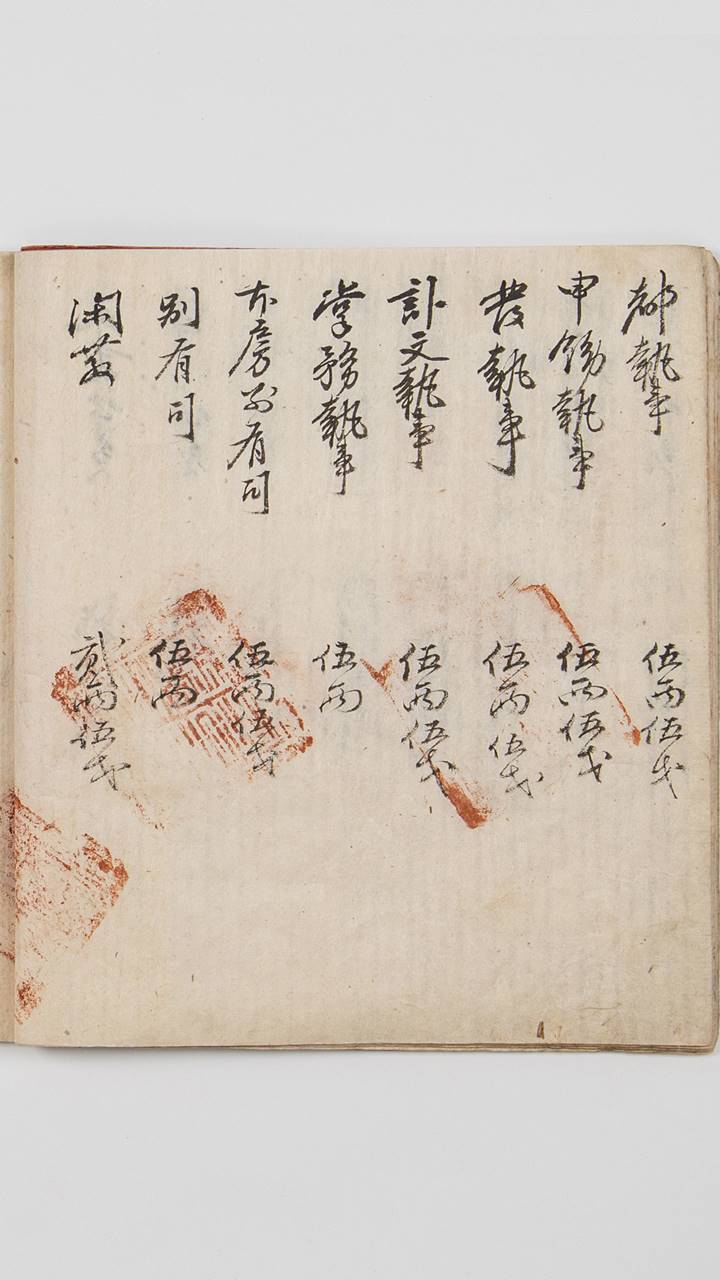 都執事 伍兩伍戋
申飭執事 伍兩伍戋
執事 伍兩伍戋
訃文執事 伍兩伍戋
掌務執事 伍兩
本房別有司 伍兩伍戋
別有司 伍兩
貳兩伍戋